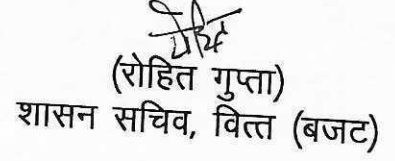 (रोहित गुप्ता)
शासन सचिव, वित्त (बजट)